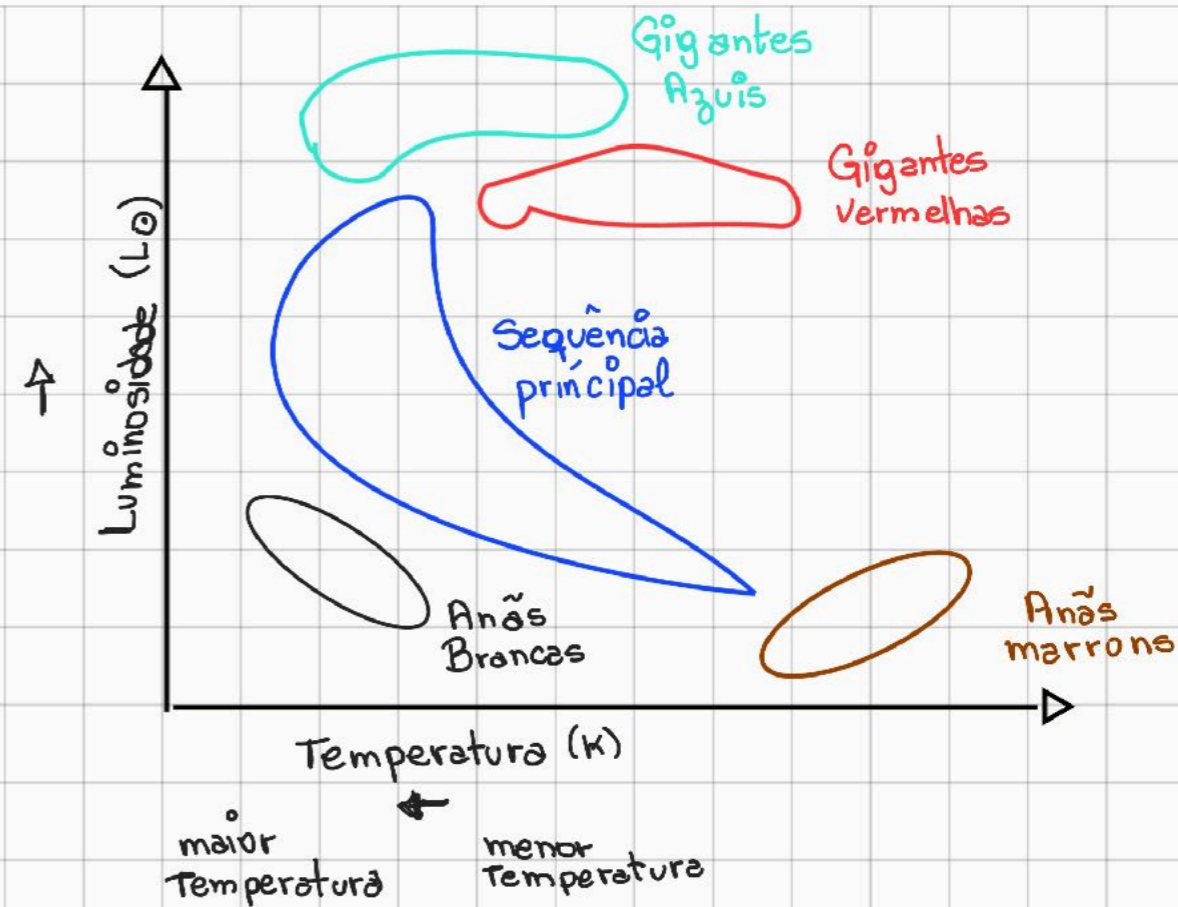 Gigantes
Azuis
Gigantes
vermelhas
Luminosidade (L⊙)
Sequência
principal
Anãs
Brancas
Anãs
marrons
Temperatura (K)
maior
Temperatura
menor
Temperatura